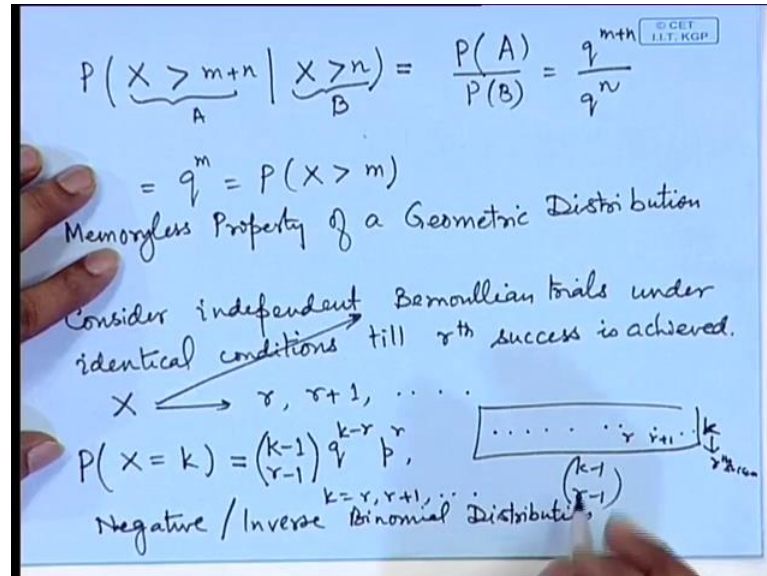 © CET
I.I.T. KGP
P( X > m+n | X > n ) = P(A) / P(B) = q^{m+n} / q^n
A B
= q^m = P(X > m)
Memoryless Property of a Geometric Distribution
Consider independent Bernoullian trials under
identical conditions till rth success is achieved.
X → r, r+1, ....
P( X = k ) = (k-1 r-1) q^{k-r} p^r,
k = r, r+1, ...
...... r r+1 .. k
(k-1 r-1)
Negative / Inverse Binomial